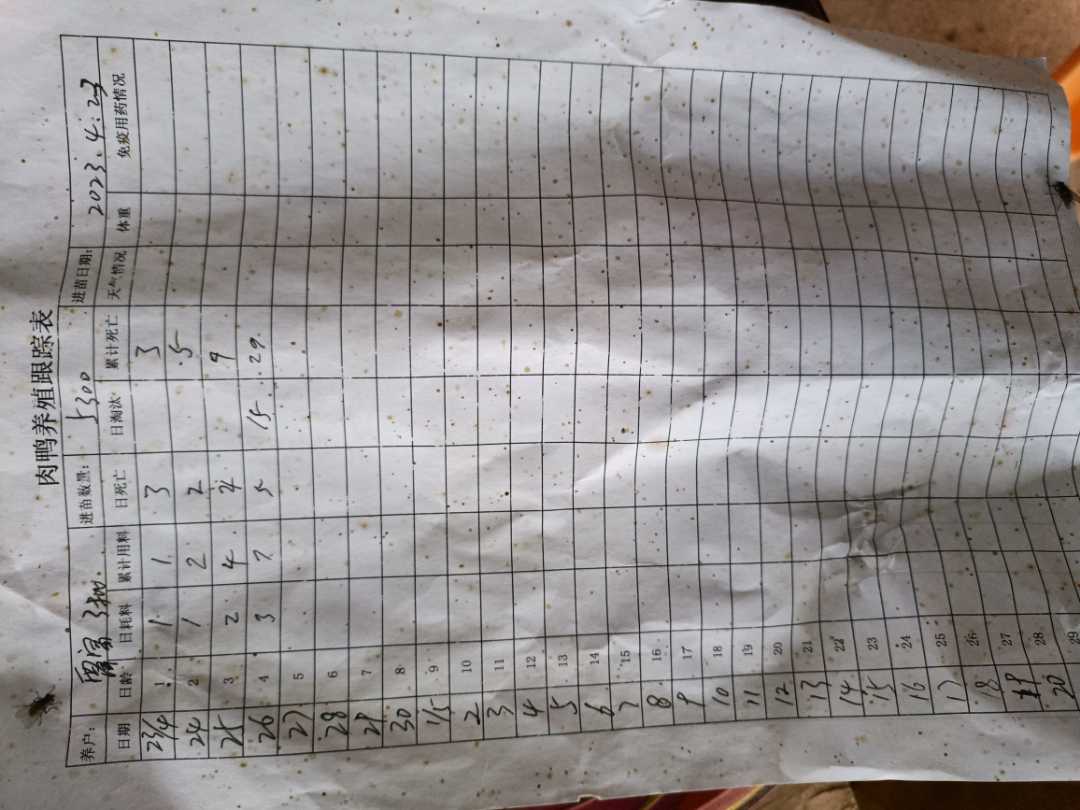 肉鸭养殖跟踪表
养户: 3批 进苗数量: 5300 进苗日期: 2023.4.23
日期 日龄 日耗料 累计用料 日死亡 日淘汰 累计死亡 天气情况 体重 免疫用药情况
23/4 1 1 1 3 3
24 2 1 2 2 5
25 3 2 4 4 9
26 4 3 7 5 15 29
27 5
28 6
29 7
30 8
1/5 9
2 10
3 11
4 12
5 13
6 14
7 15
8 16
9 17
10 18
11 19
12 20
13 21
14 22
15 23
16 24
17 25
18 26
19 27
20 28
29